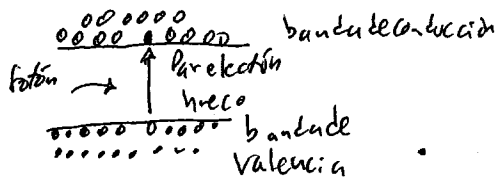 banda de conducción
fotón
Par electón
hueco
banda de
valencia